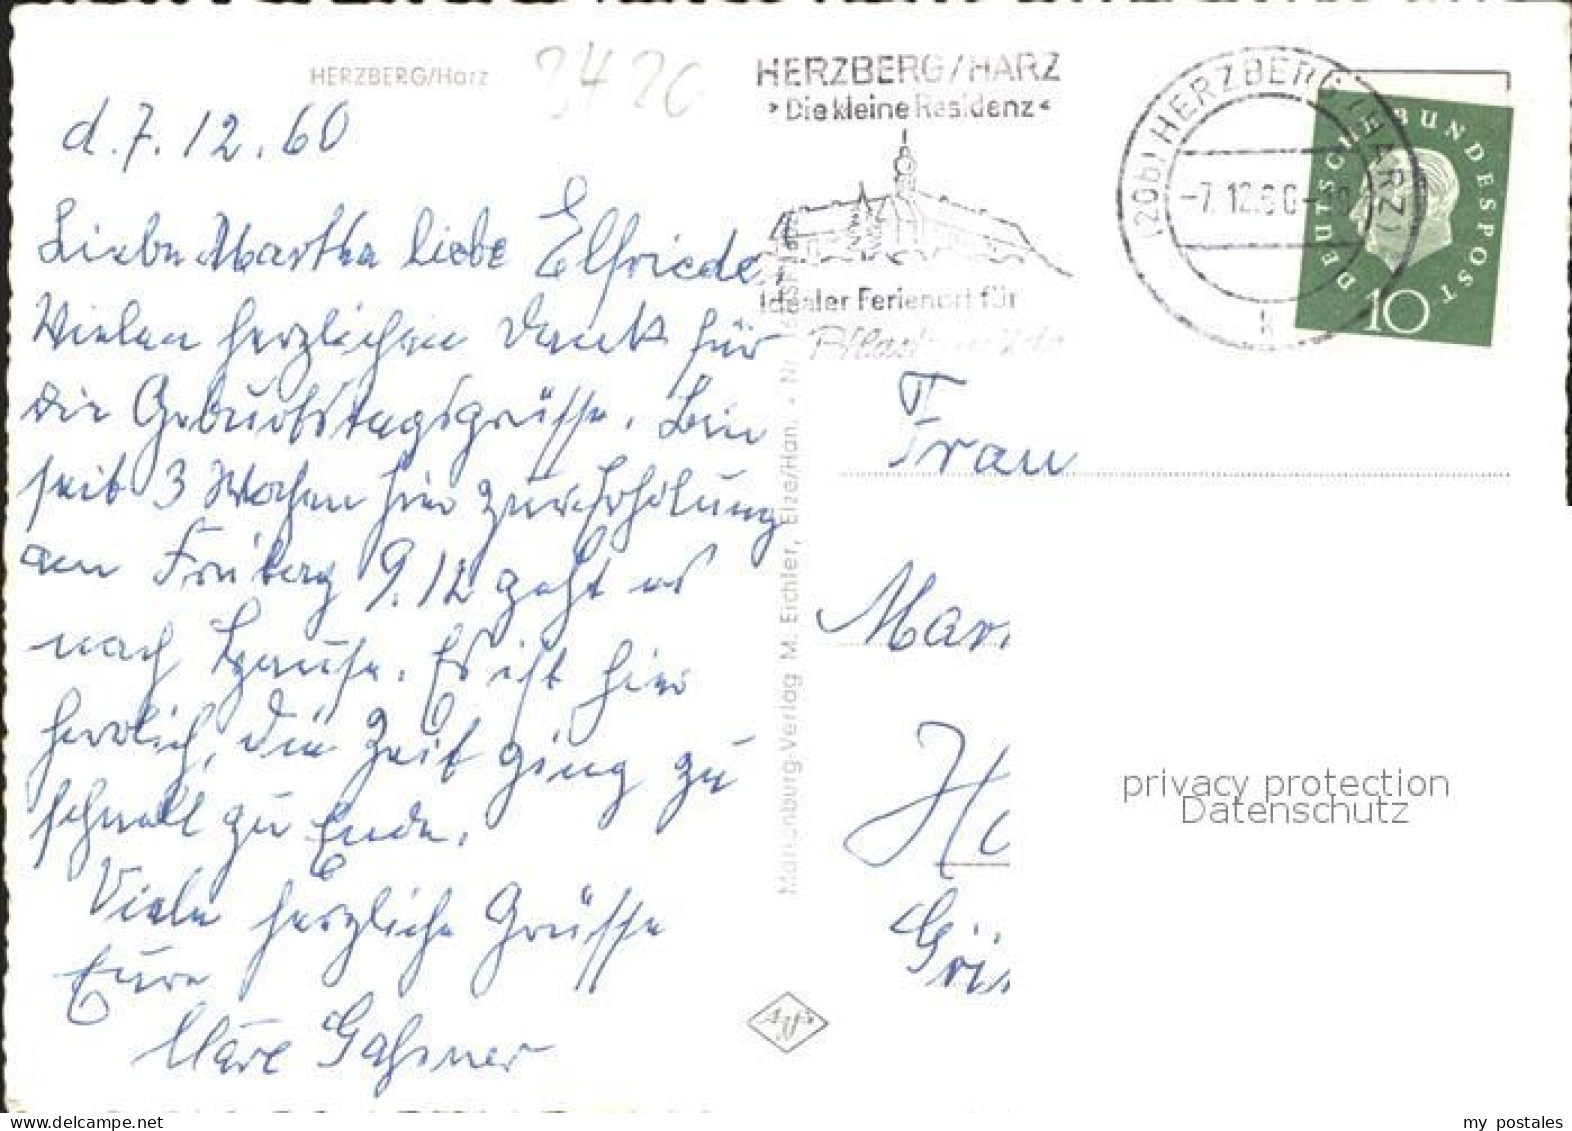 HERZBERG/Harz
d. 7. 12. 60
Liebe Martha liebe Elfriede,
Vielen herzlichen Dank für
die Geburtstagsgrüsse. Bin
seit 3 Wochen hier zur Erholung
am Freitag 9.12 geht es
nach Hause. Es ist hier
herrlich, die Zeit ging zu
schnell zu Ende.
Viele herzliche Grüsse
Eure
Gassner
HERZBERG/HARZ
Die kleine Residenz
Idealer Ferienort für
(20b) HERZBERG (HARZ)
-7.12.60-
k
DEUTSCHE BUNDESPOST
10
Marienburg-Verlag M. Eichler, Elze/Han. • Nr.
Frau
Mar
H
Gri
privacy protection
Datenschutz
www.delcampe.net
my postales